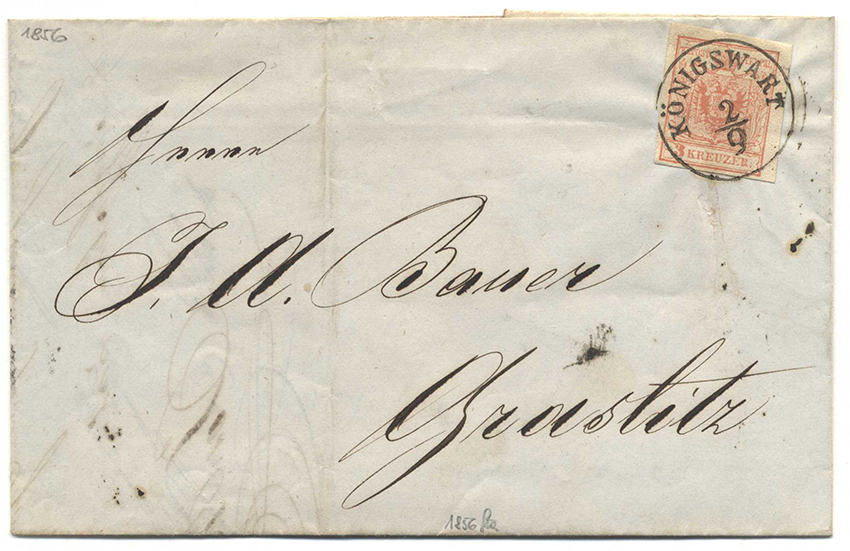 1856
KÖNIGSWART
2/9
3 KREUZER
Herrn
J. A. Bauer
Graslitz
1856